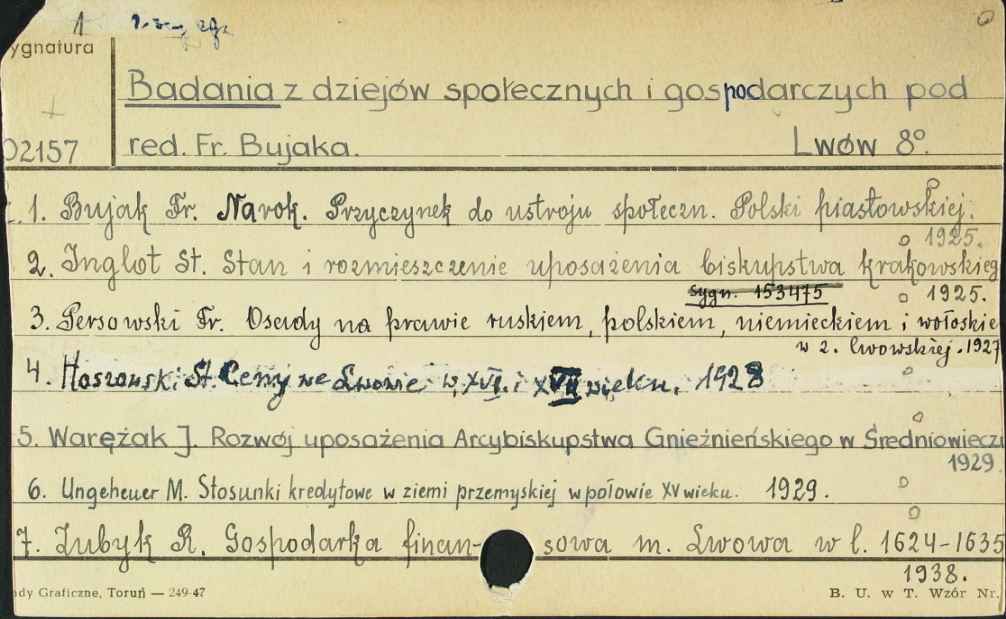 1
ygnatura
Badania z dziejów społecznych i gospodarczych pod
02157 red. Fr. Bujaka. Lwów 8º.
1. Bujak Fr. Narok. Przyczynek do ustroju społeczn. Polski piastowskiej.
1925.
2. Inglot St. Stan i rozmieszczenie uposażenia biskupstwa krakowskieg
sygn. 153475 1925.
3. Persowski Fr. Osady na prawie ruskiem, polskiem, niemieckiem i wołoskie
w z. lwowskiej. 1927
4. Hoszowski St. Ceny we Lwowie w XVI. i XVII wieku. 1928
5. Warężak J. Rozwój uposażenia Arcybiskupstwa Gnieźnieńskiego w Średniowieczu
1929.
6. Ungeheuer M. Stosunki kredytowe w ziemi przemyskiej w połowie XV wieku. 1929.
7. Zubyk R. Gospodarka finansowa m. Lwowa w l. 1624-1635
1938.
ady Graficzne, Toruń — 249-47 B. U. w T. Wzór Nr.